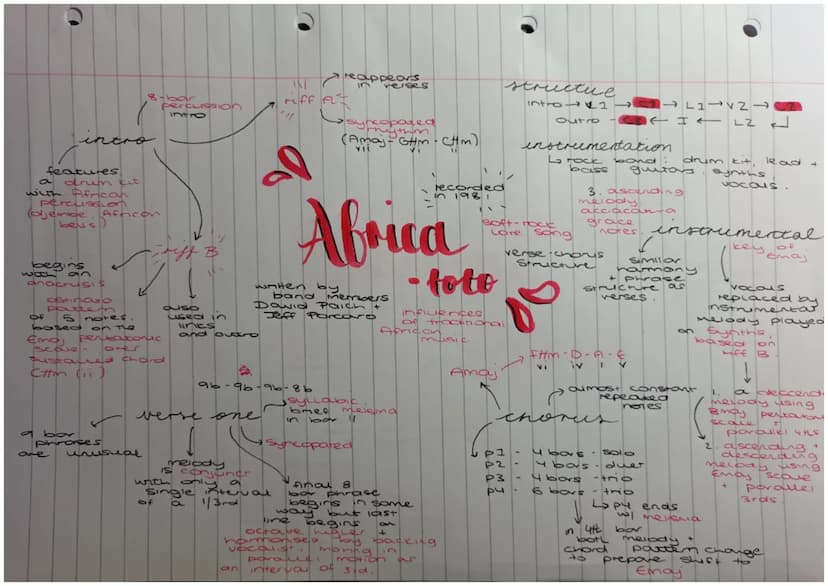 intro
8-bar
percussion
intro
features
a drum kit
with African
percussion
(djembe, African
bells)
riff A
reappears
in verses
syncopated
rhythm
(Amaj - G#m - C#m)
riff B
begins
with an
anacrusis
ostinato
pattern
of 5 notes
based on the
Emaj pentatonic
scale - over
sustained chord
C#m (ii)
also
used in
links
and outro
Africa
- toto
recorded
in 1981
soft-rock
love song
verse-chorus
structure
written by
band members
David Paich +
Jeff Porcaro
influences
of traditional
African
music
structure
intro → V1 → C1 → L1 → V2 → C2
outro - ← I ← L2
instrumentation
↳ rock band: drum kit, lead +
bass guitars, synths,
vocals.
instrumental
key of
Emaj
similar
harmony
+ phrase
structure as
verses.
vocals
replaced by
instrumental
melody played
on synths,
based on
riff B.
1. a descend
melody using
Emaj pentatonic
scale +
parallel 4ths
2. ascending +
descending
melody using
Emaj scale
+ parallel
3rds.
3. ascending
melody
acciaccatura
grace
notes.
verse one
9b - 9b - 9b - 8b
9 bar
phrases
are unusual
syllabic
brief melisma
in bar 11
syncopated
melody
is conjunct
with only a
single interval
of a 1/3rd
final 8
bar phrase
begins in same
way but last
line begins an
octave higher +
harmonised by backing
vocalist. moving in
parallel motion at
an interval of 3rd.
chorus
Amaj
F#m - D - A - E
vi IV I V
almost constant
repeated
notes
p1 - 4 bars - solo
p2 - 4 bars - duet
p3 - 4 bars - trio
p4 - 6 bars - trio
↳ p4 ends
w/ melisma
in 4th bar
both melody +
chord pattern change
to prepare shift to
Emaj